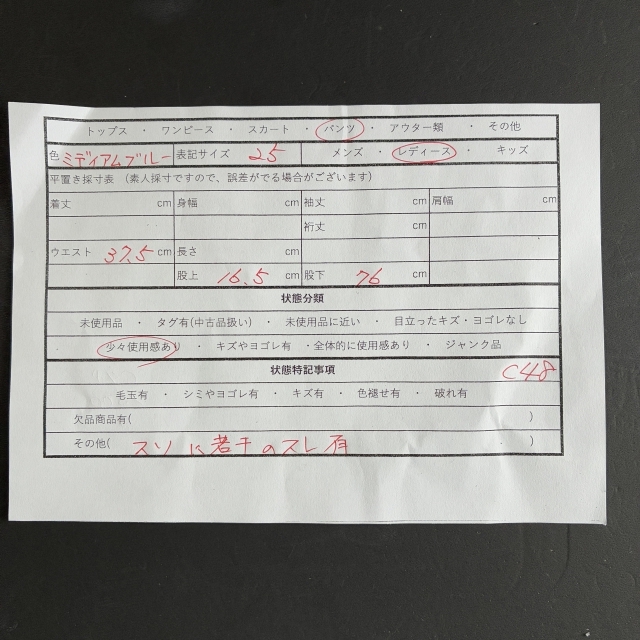 トップス ・ ワンピース ・ スカート ・ パンツ ・ アウター類 ・ その他
色 ミディアムブルー 表記サイズ 25 メンズ ・ レディース ・ キッズ
平置き採寸表 (素人採寸ですので、誤差がでる場合がございます)
着丈 cm 身幅 cm 袖丈 cm 肩幅 cm
裄丈 cm
ウエスト 37.5 cm 長さ cm
股上 16.5 cm 股下 76 cm
状態分類
未使用品 ・ タグ有(中古品扱い) ・ 未使用品に近い ・ 目立ったキズ・ヨゴレなし
少々使用感あり ・ キズやヨゴレ有 ・全体的に使用感あり ・ ジャンク品
状態特記事項 C48
毛玉有 ・ シミやヨゴレ有 ・ キズ有 ・ 色褪せ有 ・ 破れ有
欠品商品有( )
その他( スソに若干のスレ有 )